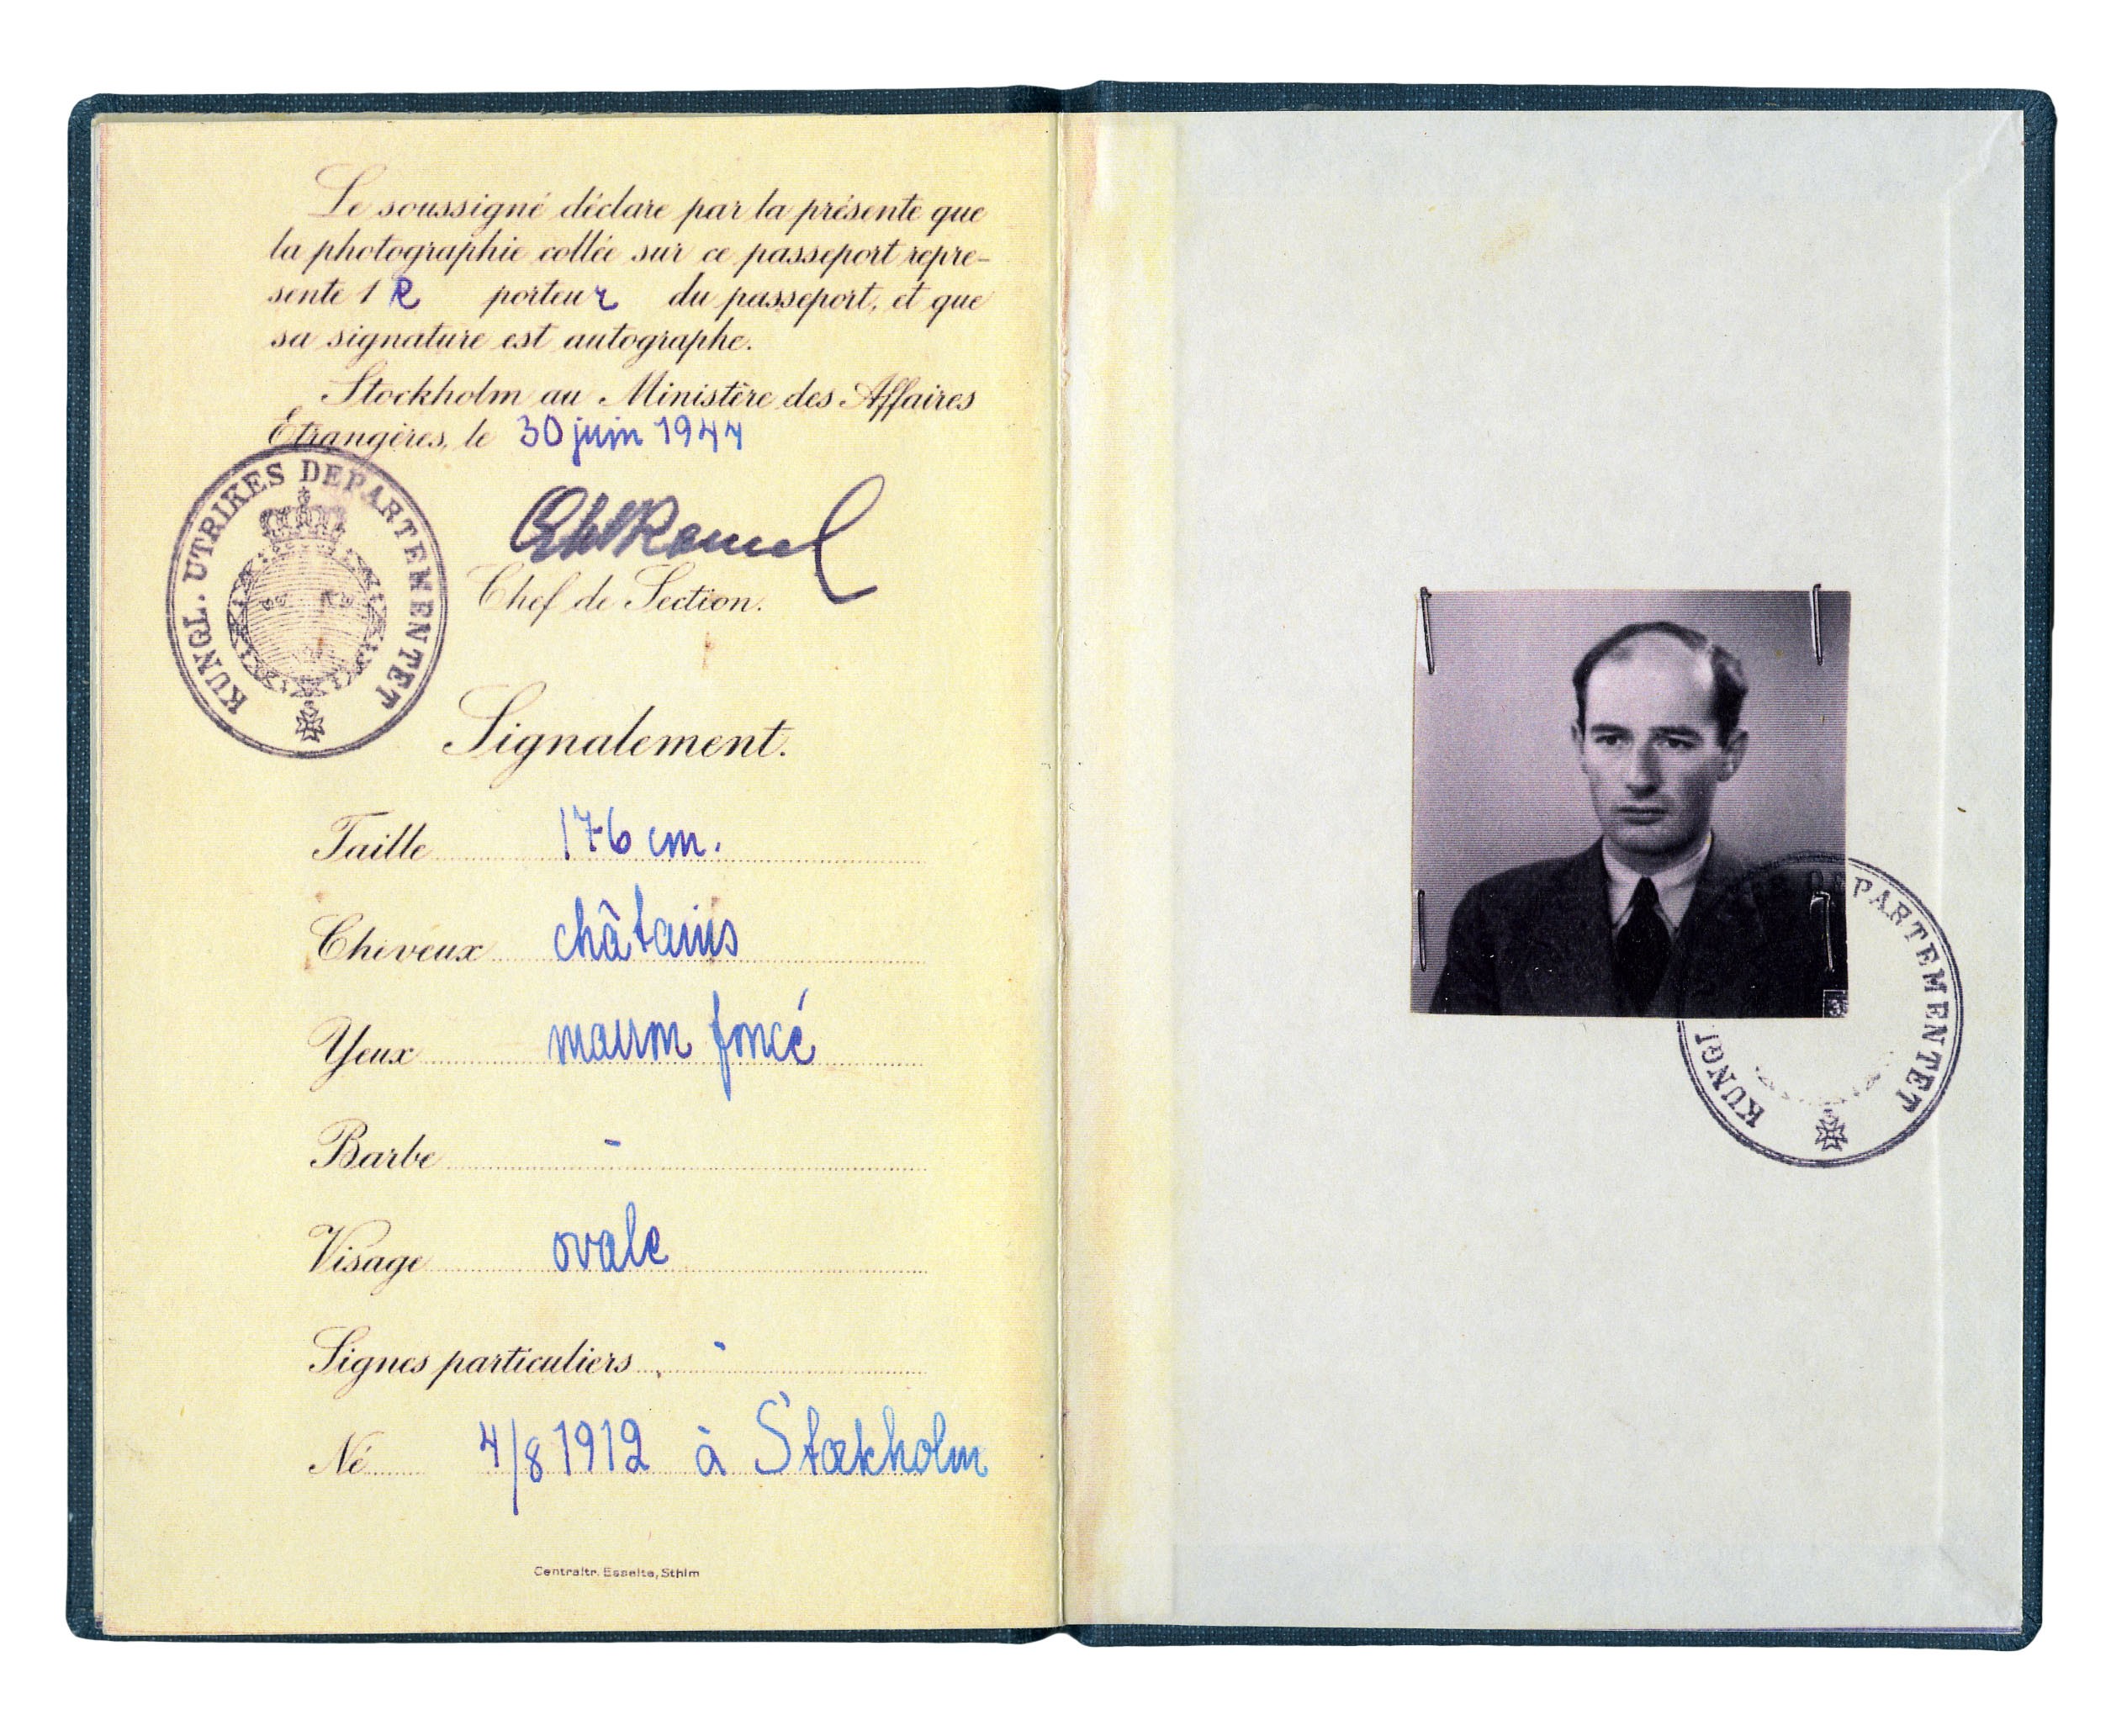 Le soussigné déclare par la présente que
la photographie collée sur ce passeport repre-
sente l e porteur du passeport, et que
sa signature est autographe.
Stockholm au Ministère des Affaires
Etrangères, le 30 juin 1944
KUNGL. UTRIKES DEPARTEMENTET
Chef de Section.
Signalement.
Taille 176 cm.
Cheveux châtains
Yeux marron foncé
Barbe -
Visage ovale
Signes particuliers -
Né 4/8 1912 à Stockholm
Centraltr. Esselte, Sthlm
KUNGL DEPARTEMENTET